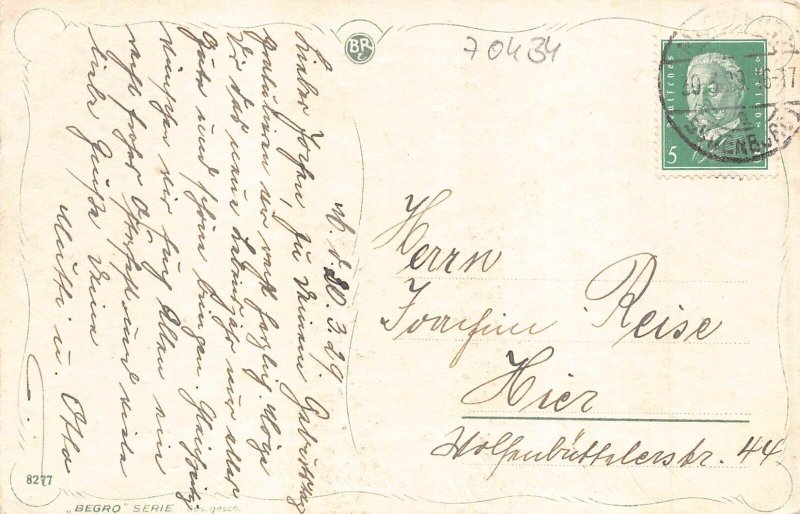 BR
70434
M. d. 30.3.29.
Lieber Jochen, zu Deinem Geburtstag
gratulieren wir recht herzlich. Möge
Dir das neue Lebensjahr nur alles
Gute und Schöne bringen. Gleichzeitig
wünschen wir Euch Allen ein
recht frohes Osterfest und viele
liebe Grüße Deine
Mutti u. Otto
Deutsches Reich
5
30.3.29. 16-17
Herrn
Joachim Reise
Hier
Wolfenbüttlerstr. 44
8277
„BEGRO" SERIE ges. gesch.